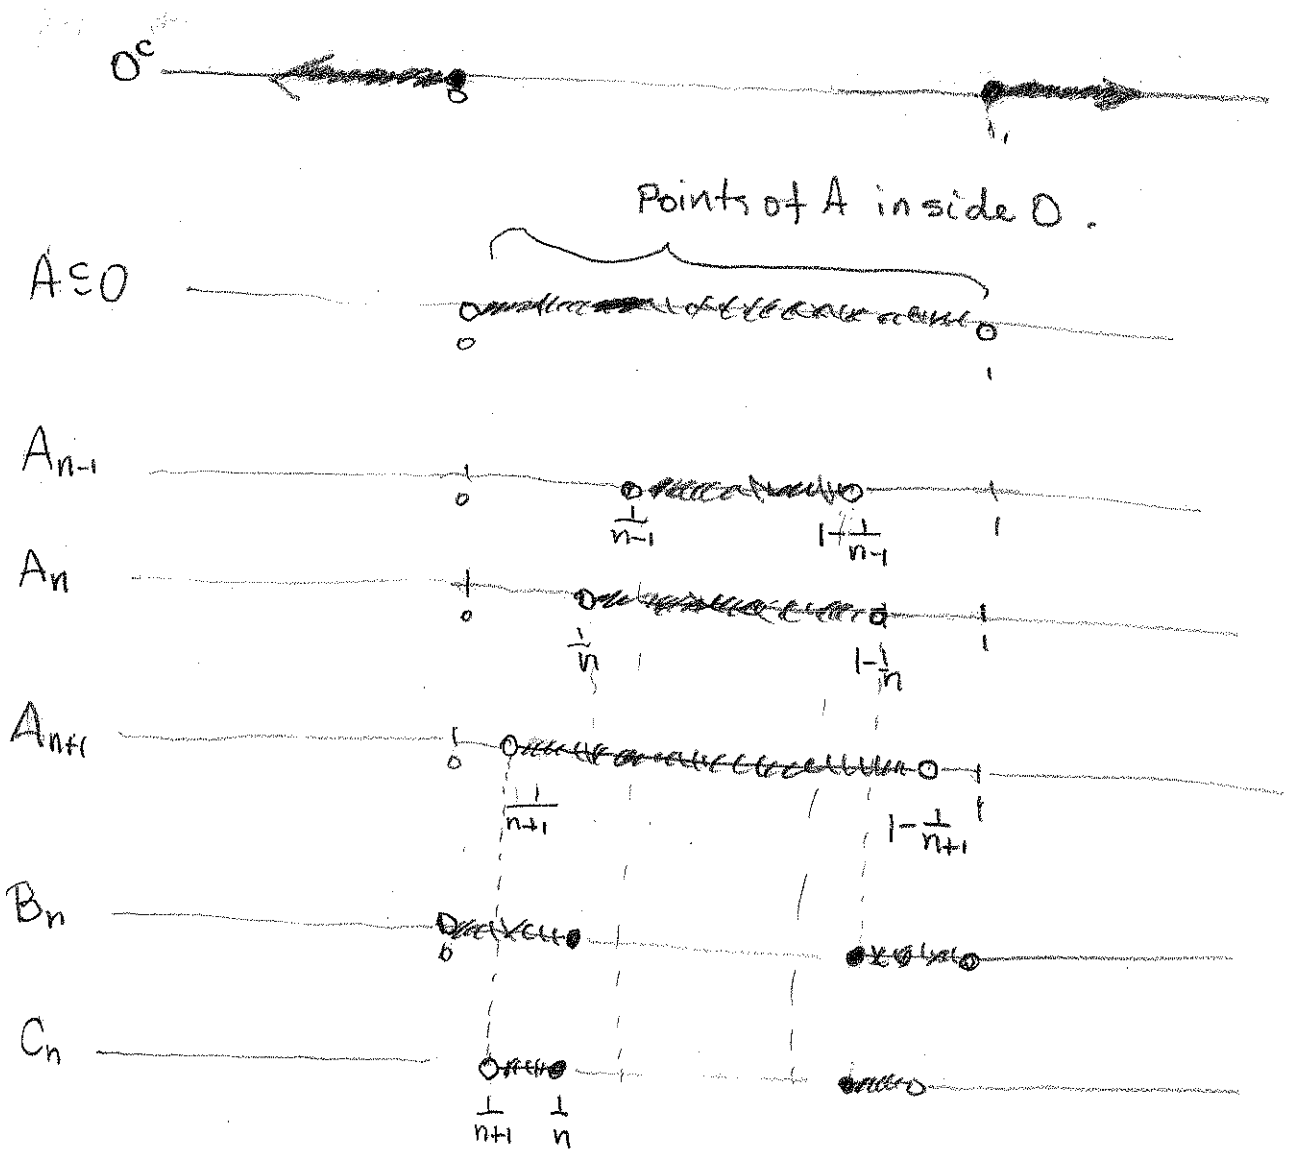 Oᶜ
0 1
Points of A inside O.
A ⊆ O
0 1
Aₙ₋₁
0 1/(n-1) 1-1/(n-1) 1
Aₙ
0 1/n 1-1/n 1
Aₙ₊₁
0 1/(n+1) 1-1/(n+1) 1
Bₙ
0
Cₙ
1/(n+1) 1/n